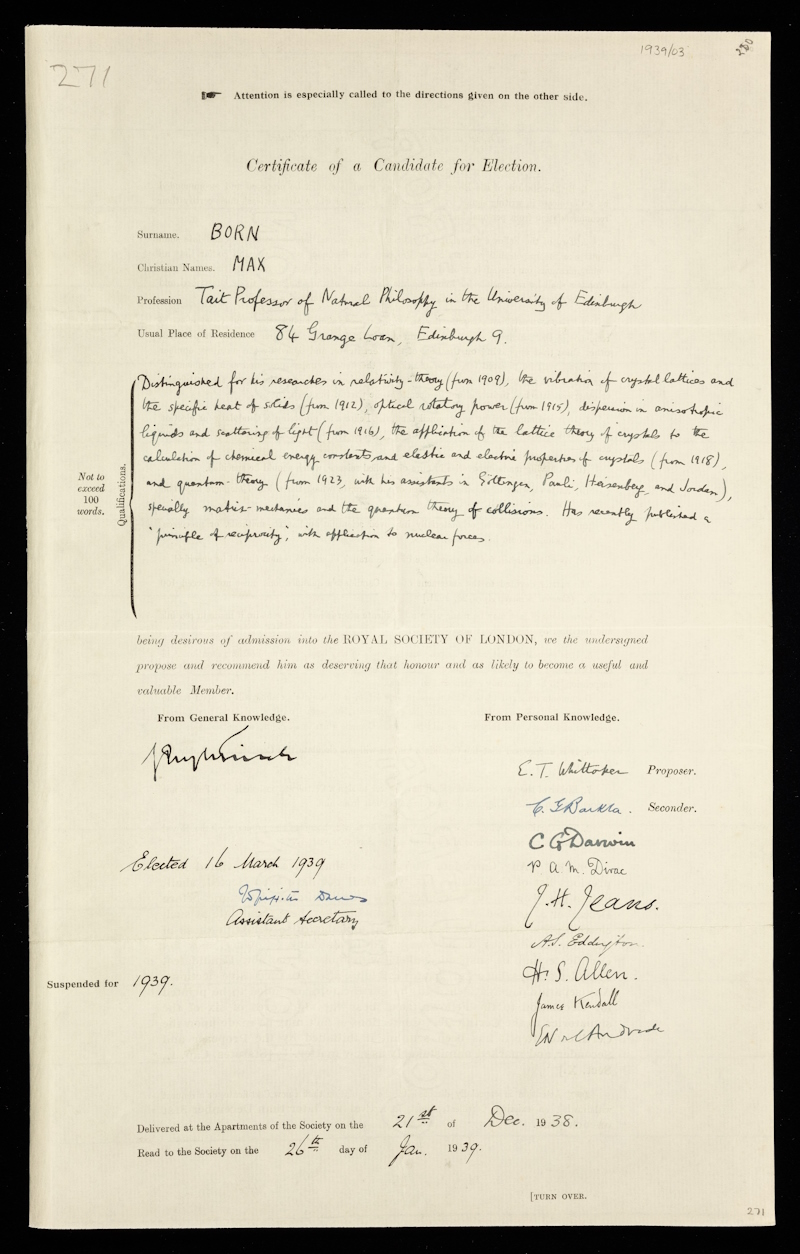 1939/03
280
271
Attention is especially called to the directions given on the other side.
Certificate of a Candidate for Election.
Surname. BORN
Christian Names. MAX
Profession Tait Professor of Natural Philosophy in the University of Edinburgh
Usual Place of Residence 84 Grange Loan, Edinburgh 9.
Not to exceed 100 words.
Qualifications.
Distinguished for his researches in relativity-theory (from 1909), the vibration of crystal lattices and
the specific heat of solids (from 1912), optical rotatory power (from 1915), dispersion in anisotropic
liquids and scattering of light (from 1916), the application of the lattice theory of crystals to the
calculation of chemical energy constants and elastic and electric properties of crystals (from 1918),
and quantum-theory (from 1923, with his assistants in Göttingen, Pauli, Heisenberg, and Jordan),
specially matrix-mechanics and the quantum theory of collisions. Has recently published a
'principle of reciprocity', with application to nuclear forces.
being desirous of admission into the ROYAL SOCIETY OF LONDON, we the undersigned
propose and recommend him as deserving that honour and as likely to become a useful and
valuable Member.
From General Knowledge.
From Personal Knowledge.
E. T. Whittaker Proposer.
C. G. Barkla. Seconder.
C G Darwin
P. A. M. Dirac
J. H. Jeans.
A.S. Eddington.
H. S. Allen.
James Kendall
Elected 16 March 1939
Assistant Secretary
Suspended for 1939.
Delivered at the Apartments of the Society on the 21st of Dec. 1938.
Read to the Society on the 26th day of Jan. 1939.
[TURN OVER.
271